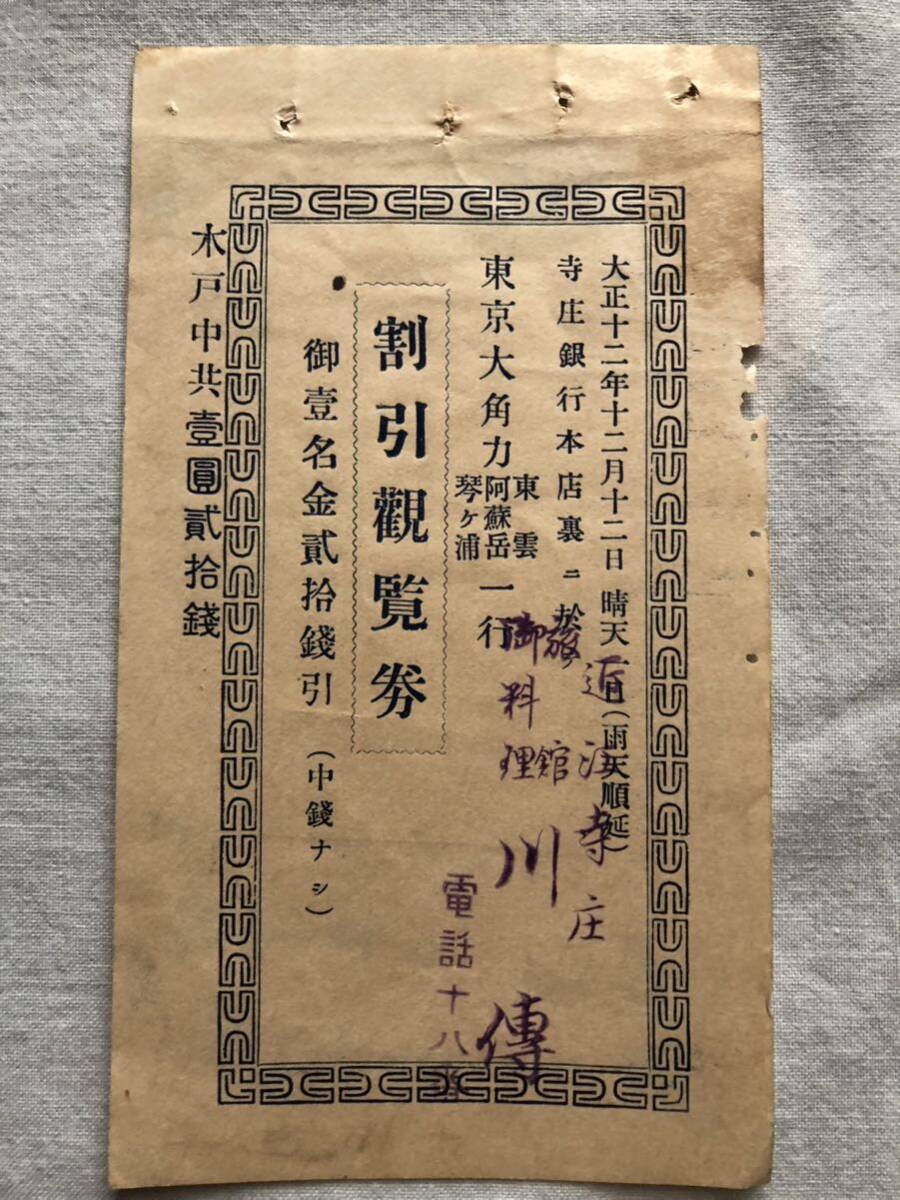 大正十二年十二月十二日 晴天一日(雨天順延)
寺庄銀行本店裏ニ於テ
東京大角力 東雲 阿蘇岳 琴ヶ浦 一行
割引觀覧券
御壹名金貳拾錢引(中錢ナシ)
木戸中共壹圓貳拾錢
近江寺庄
旅館
御料理
川傳
電話十八番